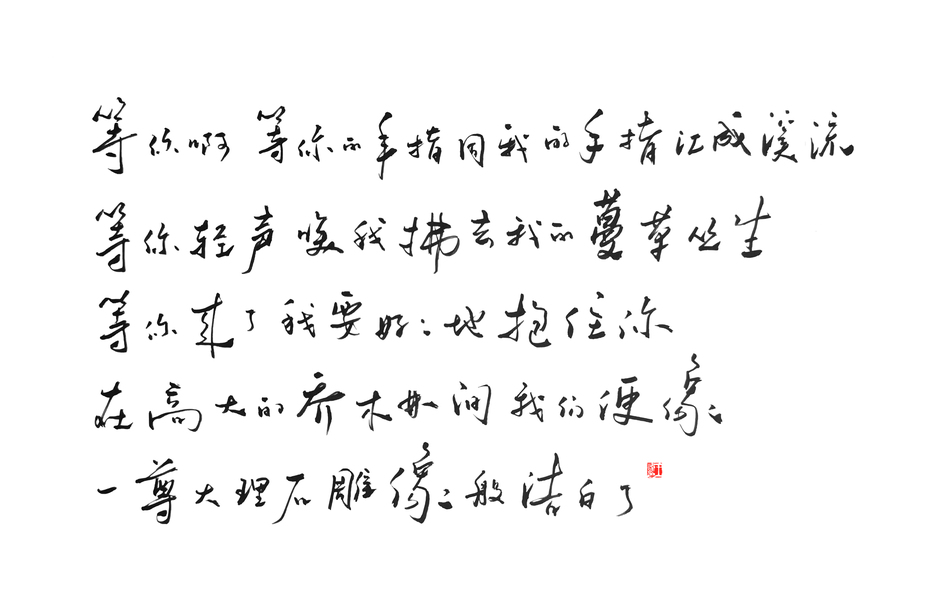 等你啊 等你的手指同我的手指汇成溪流
等你轻声唤我拂去我的蔓草丛生
等你来了我要好好地抱住你
在高大的乔木林间我们便像
一尊大理石雕像般洁白了